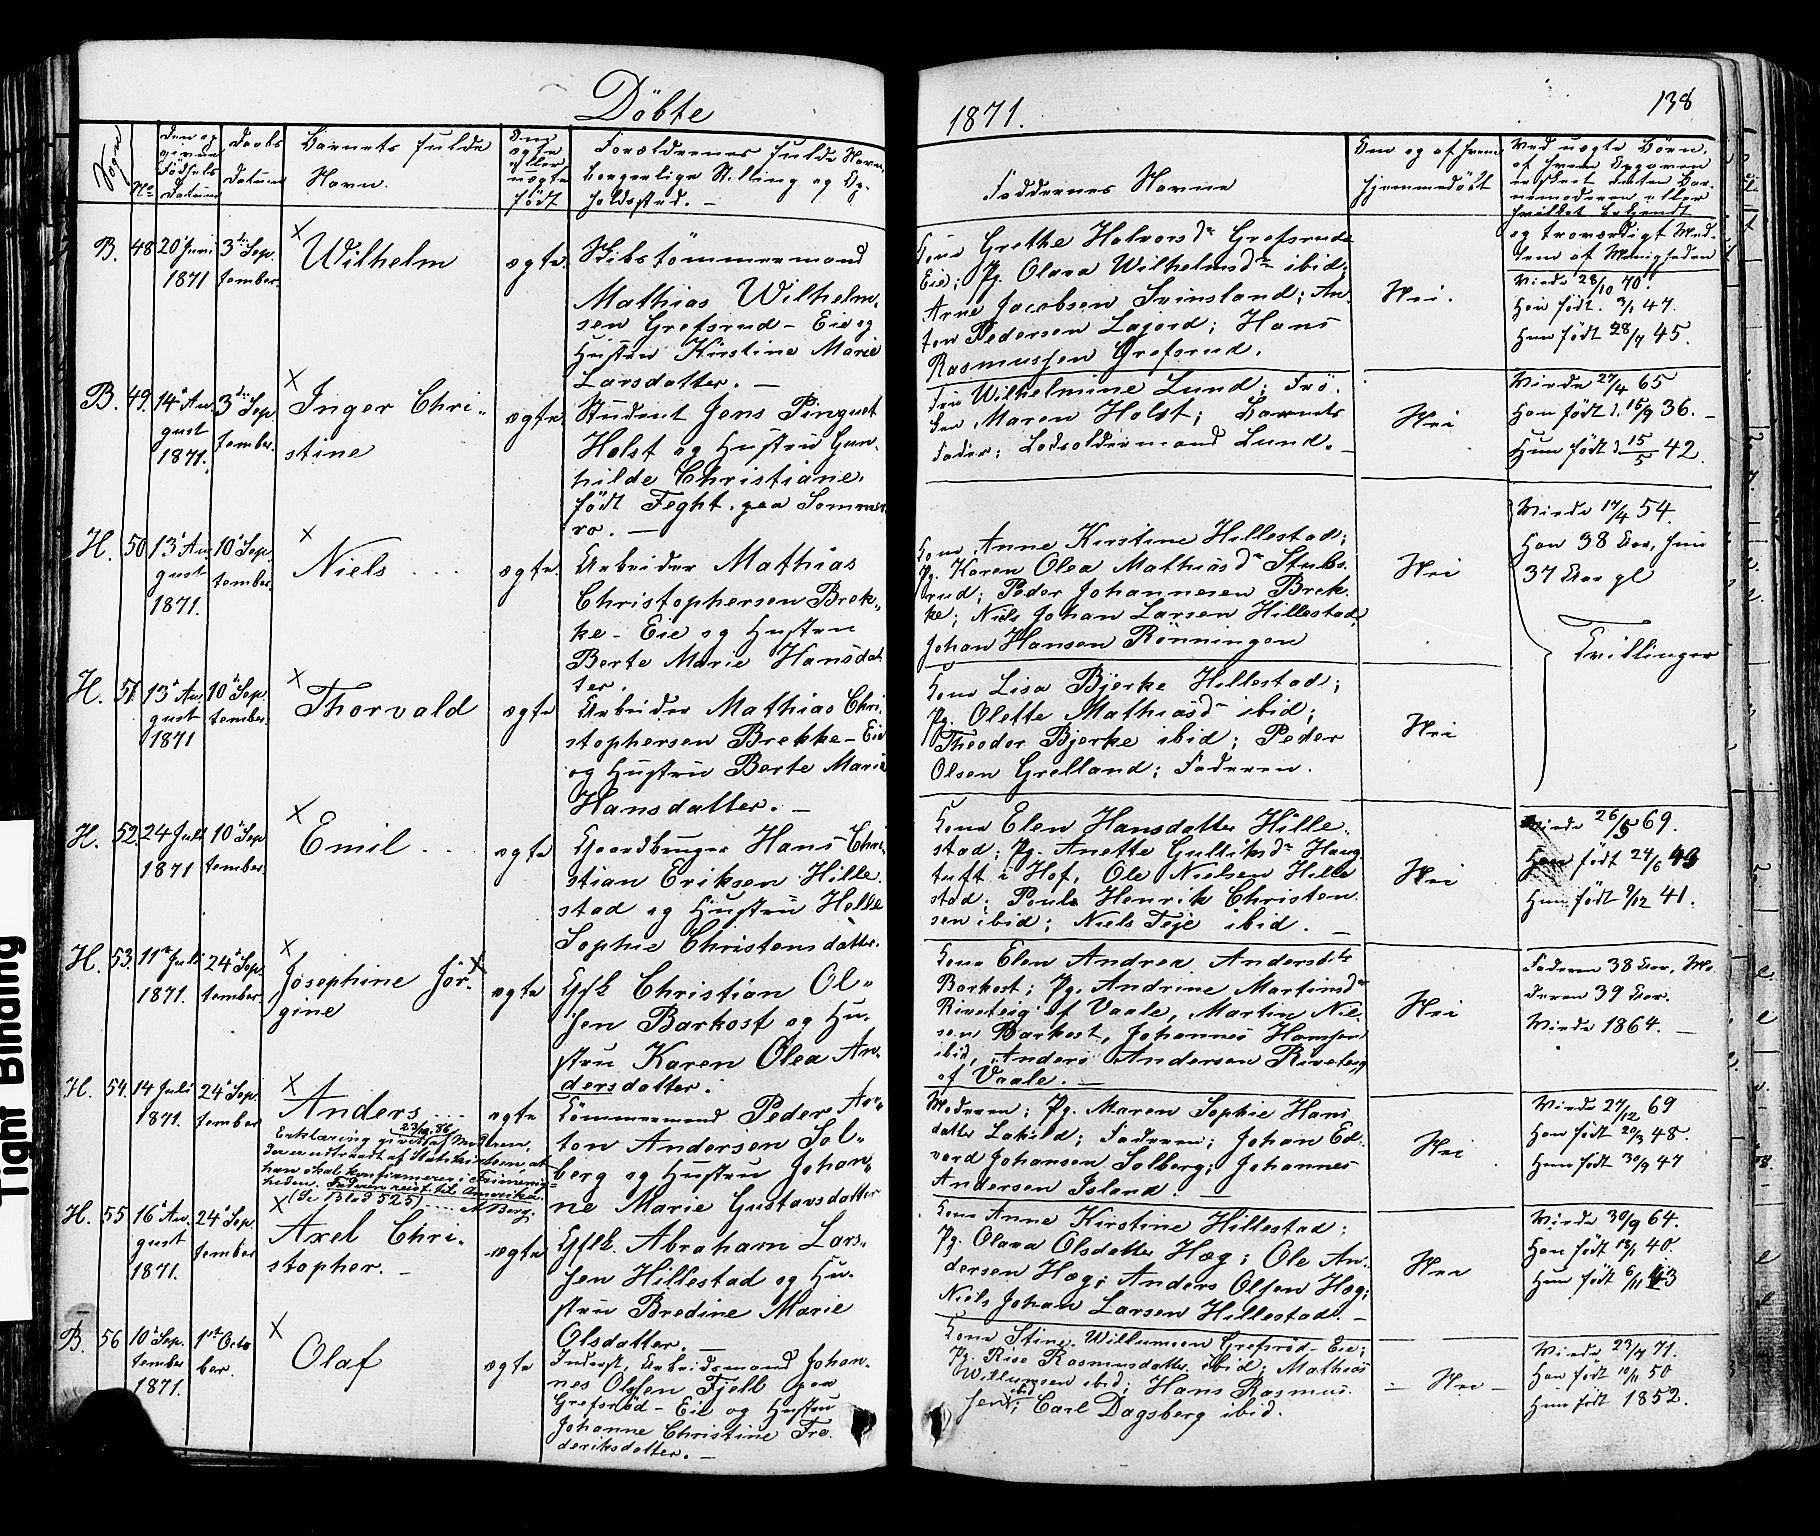 Döbte
1871.
138
Sogn
No
Den og
givne
Födsels
Datum
Daabs
Datum
Barnets fulde
Navn.
Om
ægte
eller
uægte
född
Forældrenes fulde Navn,
borgerlige Stilling og Op-
holdssted. —
Faddernes Navne
Om og af hvem
hjemmedöbt
Ved uægte Börn,
af hvem Opgaven
er skeet, enten Bar-
nemoderen eller
hvilket bekjendt
og troværdigt Med-
lem af Menigheden
B. 48 20 Juni 1871
3die Sep-
tember.
Wilhelm
ægte.
Skibstömmermand
Mathias Wilhelm-
sen Grefsrud - Eie og
Hustru Kirstine Marie
Larsdatter. —
Kone Grethe Halvorsdr Grefsrud
Eie; Pg. Olava Wilhelmsdr ibid;
Arne Jacobsen Svinsland; An-
ton Pedersen Lajord; Hans
Rasmussen Grefsrud.
Nei.
Viede 28/10 70.
Han född. 3/1 47.
Hun född 28/7 45.
B. 49. 14 Au-
gust
1871.
3die Sep-
tember.
Inger Chri-
stine
ægte.
Student Jens Pinquet
Holst og Hustru Gun-
hilde Christiane,
född Feght, paa Sommer-
ro. —
Fru Wilhelmine Lund; Frö-
ken Maren Holst; Barnets
Fader; Lodsoldermand Lund. —
Nei
Viede 27/4 65
Han född d. 15/9 36. —
Hun född d 15/5 42.
H. 50 13 Au-
gust
1871.
10 Sep-
tember.
Niels ....
ægte.
Arbeider Mathias
Christophersen Brek-
ke - Eie og Hustru
Berte Marie Hansdat-
ter.
Kone Anne Kirstine Hillestad;
Pg. Karen Olea Mathiasdr Stubs-
rud; Peder Johannesen Brek-
ke; Niels Johan Larsen Hillestad
Johan Hansen Rönningen
Nei
Viede 17/4 54.
Han 38 Aar, hun
37 Aar gl
Tvillinger
H. 51. 13 Au-
gust
1871
10 Sep-
tember.
Thorvald
ægte
Arbeider Mathias Chri-
stophersen Brekke - Eie
og Hustru Berte Marie
Hansdatter. —
Kone Lisa Bjerke Hillestad;
Pg. Olette Mathiasdr ibid;
Theodor Bjerke ibid; Peder
Olsen Grelland; Faderen.
Nei
H. 52. 24 Juli
1871
10 Sep-
tember.
Emil ...
ægte
Gaardbruger Hans Chri-
stian Eriksen Hille-
stad og Hustru Helle
Sophie Christensdatter.
Kone Elen Hansdatter Hille-
stad; Pg. Anette Gulliksdr Haug-
tuft i Hof, Ole Nielsen Hille-
stad; Poul Henrik Christen-
sen ibid; Niels Teje ibid. —
Nei
Viede 26/5 69.
Han född 24/6 43
Hun född 9/12 41.
H. 53. 11 Juli
1871.
24 Sep-
tember.
Josephine Jör-
gine
ægte
Gflk Christian Ol-
sen Barkost og Hu-
stru Karen Olea An-
dersdatter.
Kone Elen Andrea Andersdtr
Barkost; Pg. Andrine Martinsdr
Riveteig af Vaale, Martin Niel-
sen Barkost, Johannes Hansen
ibid, Anders Andersen Riveteig
af Vaale. —
Nei
Faderen 38 Aar, Mo-
deren 39 Aar.
Viede 1864. —
H. 54. 14 Juli
1871.
24 Sep-
tember
Anders ....
Erklæring 23/10 86 givet af Moderen,
der er udtraadt af Statskirken, at
han skal konfirmeres i Frimenig-
heden. Faderen reist til Amerika.
(Se Blad 525) .... A Berg.
ægte
Tömmermand Peder An-
ton Andersen Sol-
berg og Hustru Johan-
ne Marie Gustavsdatter
Moderen; Pg. Maren Sophie Hans-
datter Lakild; Faderen; Johan Ed-
vard Johansen Solberg; Johannes
Andersen Island. —
Nei
Viede 27/12 69
Han född 20/3 48.
Hun född 30/9 47
H. 55 16 Au-
gust
1871.
24 Sep-
tember
Axel Chri-
stopher. —
ægte
Gflk. Abraham Lars-
sen Hillestad og Hu-
stru Bredine Marie
Olsdatter. —
Kone Anne Kirstine Hillestad;
Pg. Olava Olsdatter Hæg; Ole An-
dersen Hæg; Anders Olsen Hæg;
Niels Johan Larsen Hillestad. —
Nei
Viede 30/9 64.
Han född 18/1 40.
Hun född 6/11 43
B. 56 10 Sep-
tember
1871.
1ste Octo-
ber.
Olaf
ægte
Inderst, Arbeidsmand Johan-
nes Olsen Fjell paa
Grefsröd - Eie og Hustru
Johanne Christine Fre-
deriksdatter. —
Kone Stine Willumsen Grefsröd - Eie;
Pg. Rise Rasmusdatter ibid; Mathias
Willumsen ibid; Hans Rasmus-
sen ibid; Carl Dagsberg ibid.
- Nei -
Viede 23/7 71.
Han född 10/11 50
Hun född 1852.
Tight Binding